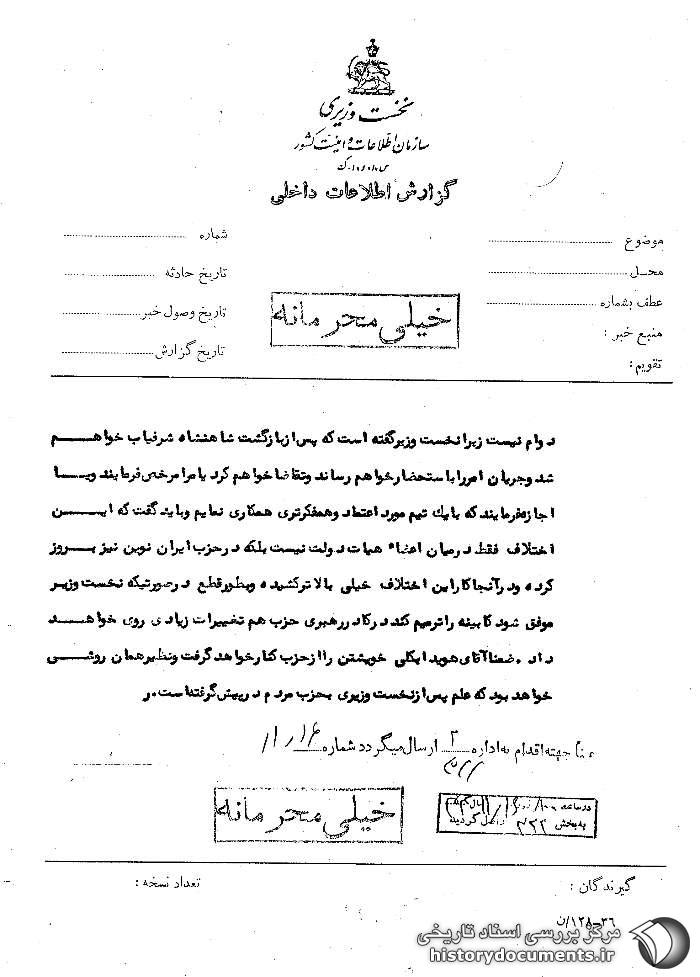 نخست وزیری
سازمان اطلاعات و امنیت کشور
س.ا.و.ا.ک
گزارش اطلاعات داخلی
موضوع
شماره
محل
تاریخ حادثه
عطف بشماره
تاریخ وصول خبر
منبع خبر :
تاریخ گزارش
تقویم :
خیلی محرمانه
دوام نیست زیرا نخست وزیر گفته است که پس از بازگشت شاهنشاه شرفیاب خواهم
شد و جریان امر را باستحضار خواهم رساند و تقاضا خواهم کرد یا مرا مرخص فرمایند و یا
اجازه فرمایند که با یک تیم مورد اعتماد و همفکرتری همکاری نمایم و باید گفت که این
اختلاف فقط در میان اعضاء هیات دولت نیست بلکه در حزب ایران نوین نیز بروز
کرده و در آنجا کار این اختلاف خیلی بالاتر کشیده و بطور قطع در صورتیکه نخست وزیر
موفق شود کابینه را ترمیم کند در کادر رهبری حزب هم تغییرات زیادی روی خواهد
داد . ضمنا آقای هویدا بکلی خویشتن را از حزب کنار خواهد گرفت و نظیر همان روشی
خواهد بود که علم پس از نخست وزیری بحزب مردم در پیش گرفته است . ر
جهته اقدام به اداره ۳ ارسال میگردد شماره
خیلی محرمانه
در ساعت
به بخش ۳۲۲ داخل گردید
گیرندگان :
تعداد نسخه :
۳۶-۱۲۸/ن
مرکز بررسی اسناد تاریخی
historydocuments.ir